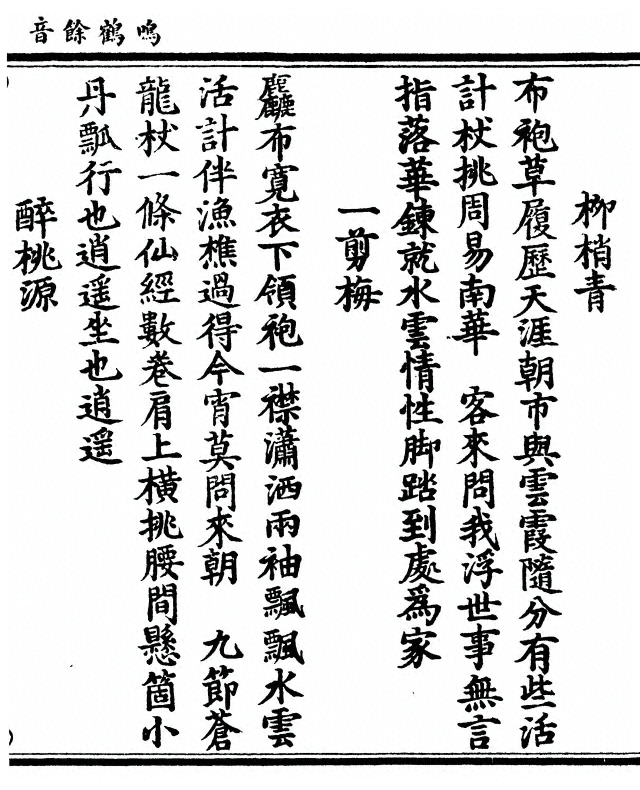 鳴鶴餘音
柳梢青
布袍草履歷天涯朝市與雲霞隨分有些活
計杖挑周易南華　客來問我浮世事無言
指落華鍊就水雲情性脚踏到處爲家
一剪梅
麤布寬衣下領袍一襟瀟洒兩袖飄飄水雲
活計伴漁樵過得今宵莫問來朝　九節蒼
龍杖一條仙經數卷肩上橫挑腰間懸箇小
丹瓢行也逍遥坐也逍遥
醉桃源